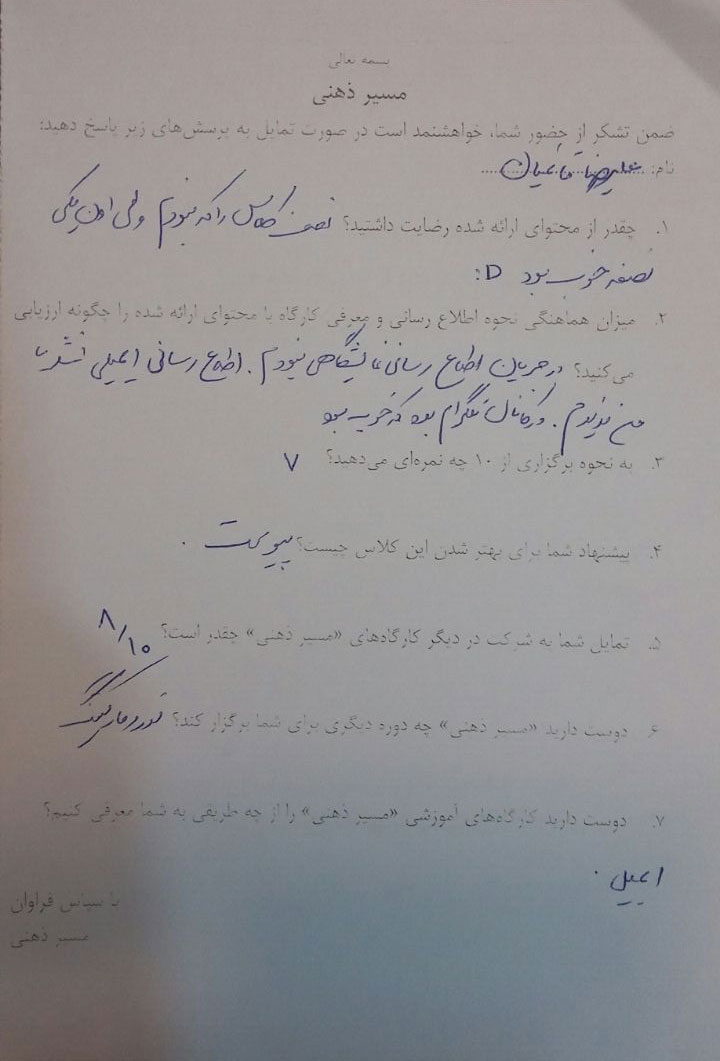 بسمه تعالی
مسیر ذهنی
ضمن تشکر از حضور شما، خواهشمند است در صورت تمایل به پرسش‌های زیر پاسخ دهید:
نام: علیرضا
۱. چقدر از محتوای ارائه شده رضایت داشتید؟ نصف کلاس را که نبودم ولی اون یکی
نصفه خوب بود D:
۲. میزان هماهنگی نحوه اطلاع رسانی و معرفی کارگاه با محتوای ارائه شده را چگونه ارزیابی
می‌کنید؟ در جریان اطلاع رسانی نمایشگاهی نبودم. اطلاع رسانی ایمیلی نشد یا
من ندیدم. در کانال تلگرام بود که خوب بود
۳. به نحوه برگزاری از ۱۰ چه نمره‌ای می‌دهید؟ ۷
۴. پیشنهاد شما برای بهتر شدن این کلاس چیست؟ پیوست.
۵. تمایل شما به شرکت در دیگر کارگاه‌های «مسیر ذهنی» چقدر است؟ ۸/۱۰
۶. دوست دارید «مسیر ذهنی» چه دوره دیگری برای شما برگزار کند؟ نورومارکتینگ
۷. دوست دارید کارگاه‌های آموزشی «مسیر ذهنی» را از چه طریقی به شما معرفی کنیم؟
ایمیل.
با سپاس فراوان
مسیر ذهنی